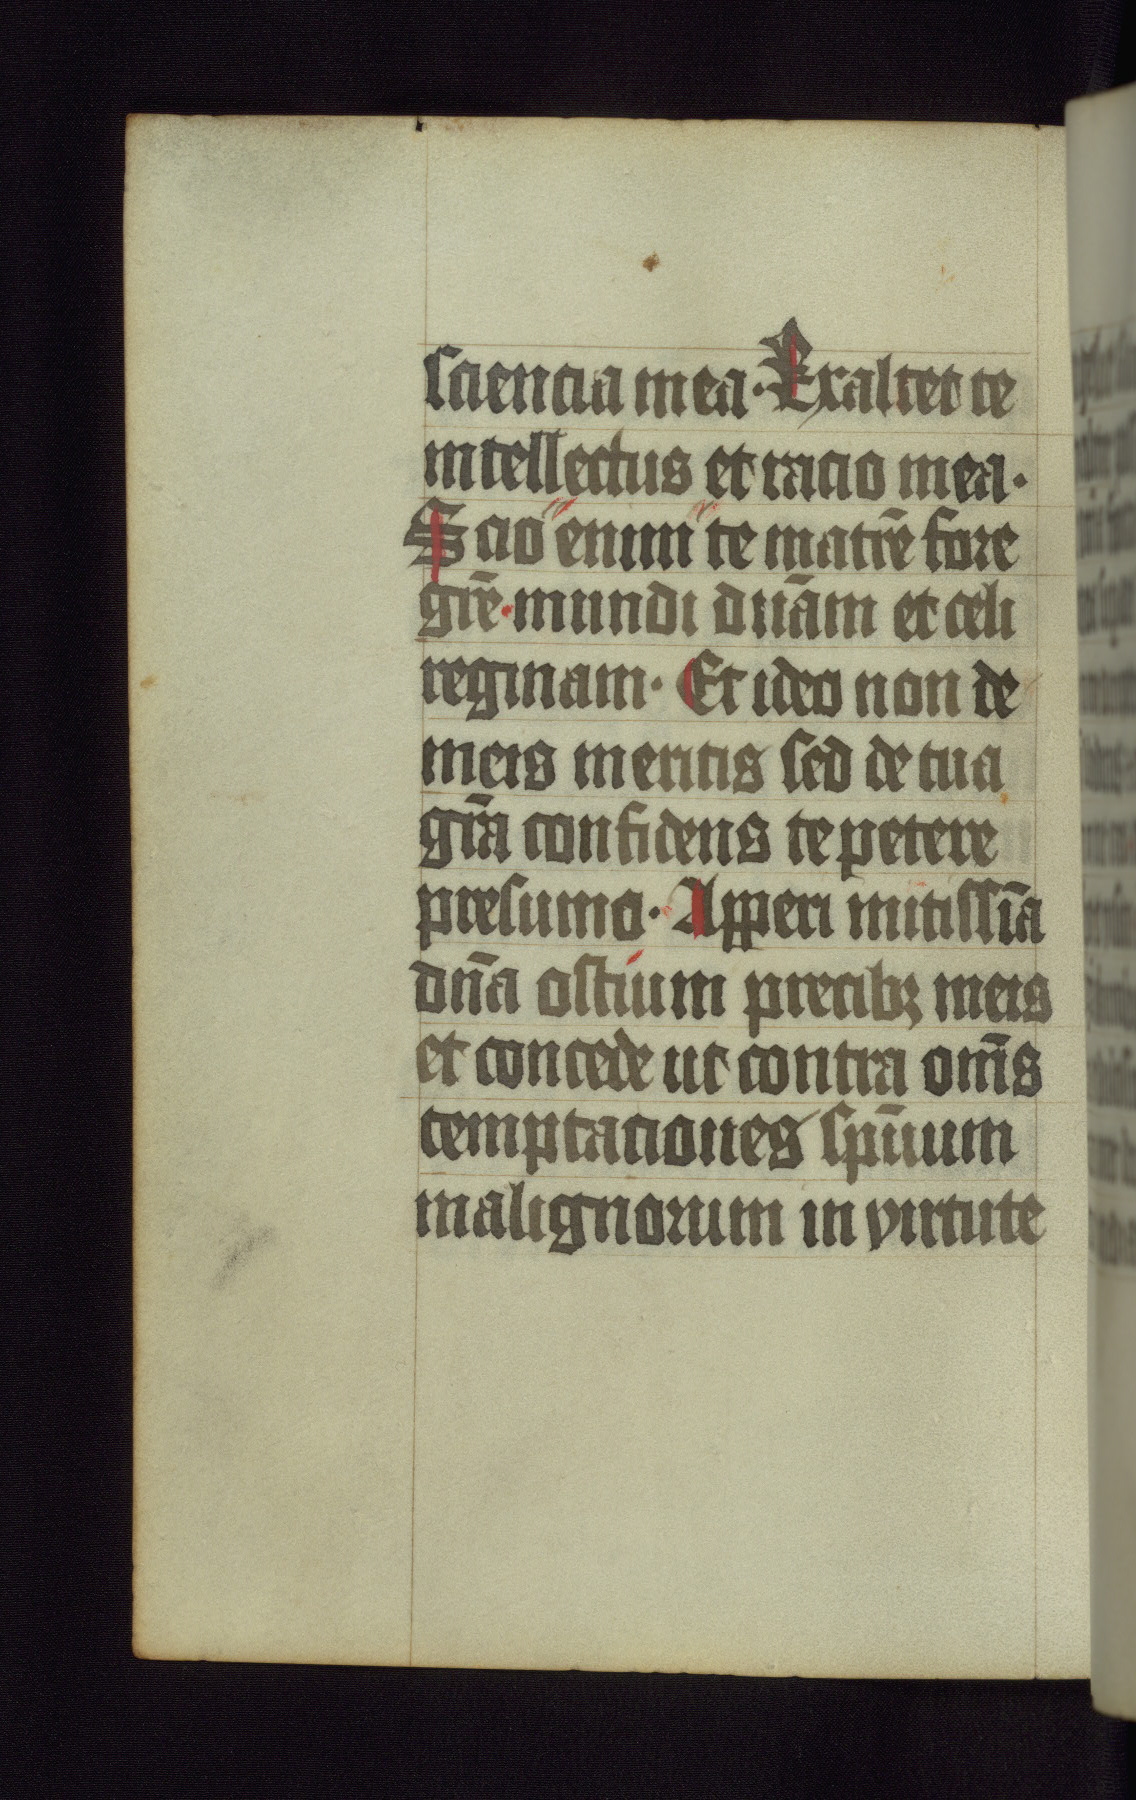 sciencia mea. Exaltet te
intellectus et racio mea.
Scio enim te matrē fore
grē. mundi dnām et celi
reginam. Et ideo non de
meis meritis sed de tua
grā confidens te petere
presumo. Apperi mitissīa
dn̄a ostium precibꝫ meis
et concede ut contra om̄s
temptaciones spūum
malignorum in virtute